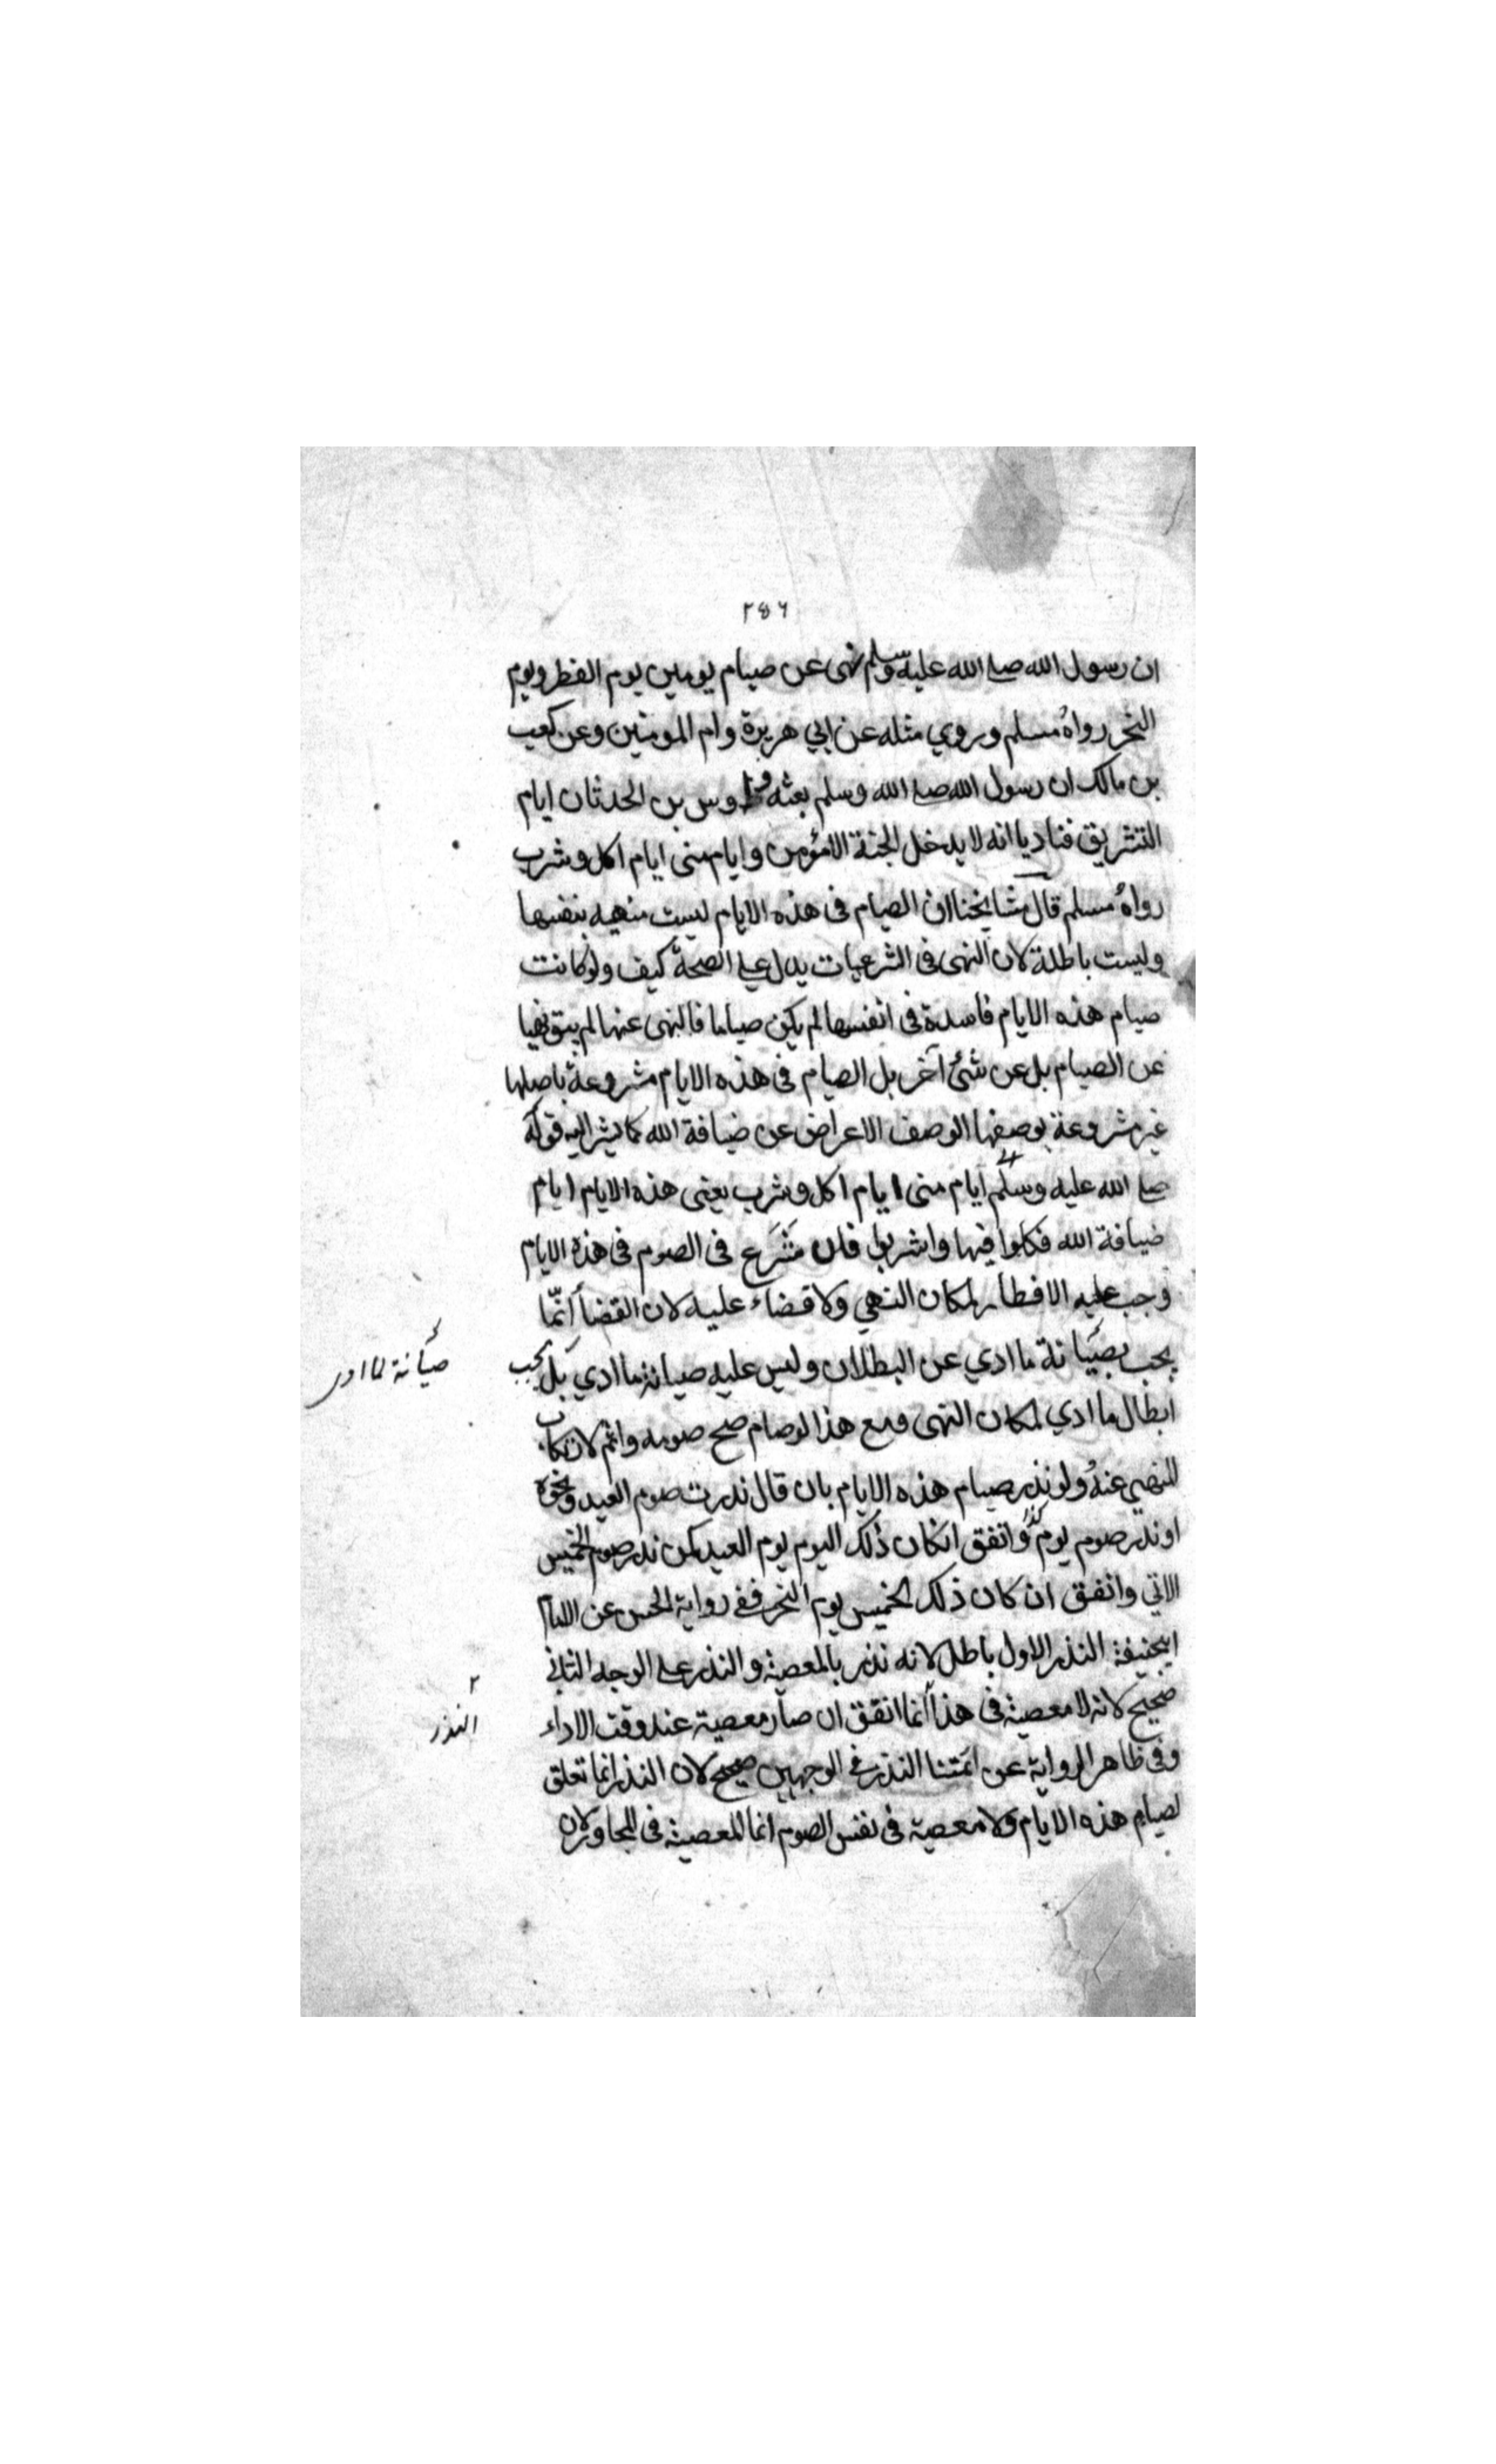 ٢٤٦
ان رسول الله صلى الله عليه وسلم نهى عن صيام يومين يوم الفطر ويوم
النحر رواه مسلم وروي مثله عن ابي هريرة وام المومنين وعن كعب
بن مالك ان رسول الله صلى الله وسلم بعثه وس بن الحدثان ايام
التشريق فناديا انه لا يدخل الجنة الا مؤمن وايام منى ايام اكل وشرب
رواه مسلم قال مشايخنا ان الصيام فى هذه الايام ليست منهيه بنفسها
وليست باطلة لان النهى فى الشرعيات يدل على الصحة كيف ولو كانت
صيام هذه الايام فاسدة فى انفسها لم يكن صياما فالنهى عنها لم يبق نهيا
عن الصيام بل عن شئ آخر بل الصيام فى هذه الايام مشروعة باصلها
غير مشروعة بوصفها الوصف الاعراض عن ضيافة الله كما يشر اليه قوله
صلى الله عليه وسلم ايام منى ايام اكل وشرب يعنى هذه الايام ايام
ضيافة الله فكلوا فيها واشربوا فان شَرَع فى الصوم فى هذه الايام
وجب عليه الافطار لمكان النهي ولا قضاء عليه لان القضأ انمّا
يجب بصيانة ما ادي عن البطلان وليس عليه صيانة ما ادي بل يجب
صيانة لما ادى
ابطال ما ادي لمكان النهى ومع هذا لو صام صح صومه واثم لارتكاب
للمنهي عنه ولو نذر صيام هذه الايام بان قال نذرت صوم العيد ونحوه
او نذر صوم يوم كذا واتفق انكان ذلك اليوم يوم العيد كمن نذر صوم الخميس
الاتي واتفق ان كان ذلك الخميس يوم النحر ففى رواية الحسن عن الامام
ابيحنيفة النذر الاول باطل لانه نذر بالمعصية والنذر على الوجه الثاني
صحيح لانه لا معصية فى هذا انما اتفق ان صار معصية عند وقت الاداء
٢ النذر
وفى ظاهر الرواية عن ائمتنا النذر فى الوجهين صحيح لان النذر انما تعلق
لصيام هذه الايام ولا معصية فى نفس الصوم انما المعصية فى المجاور لان